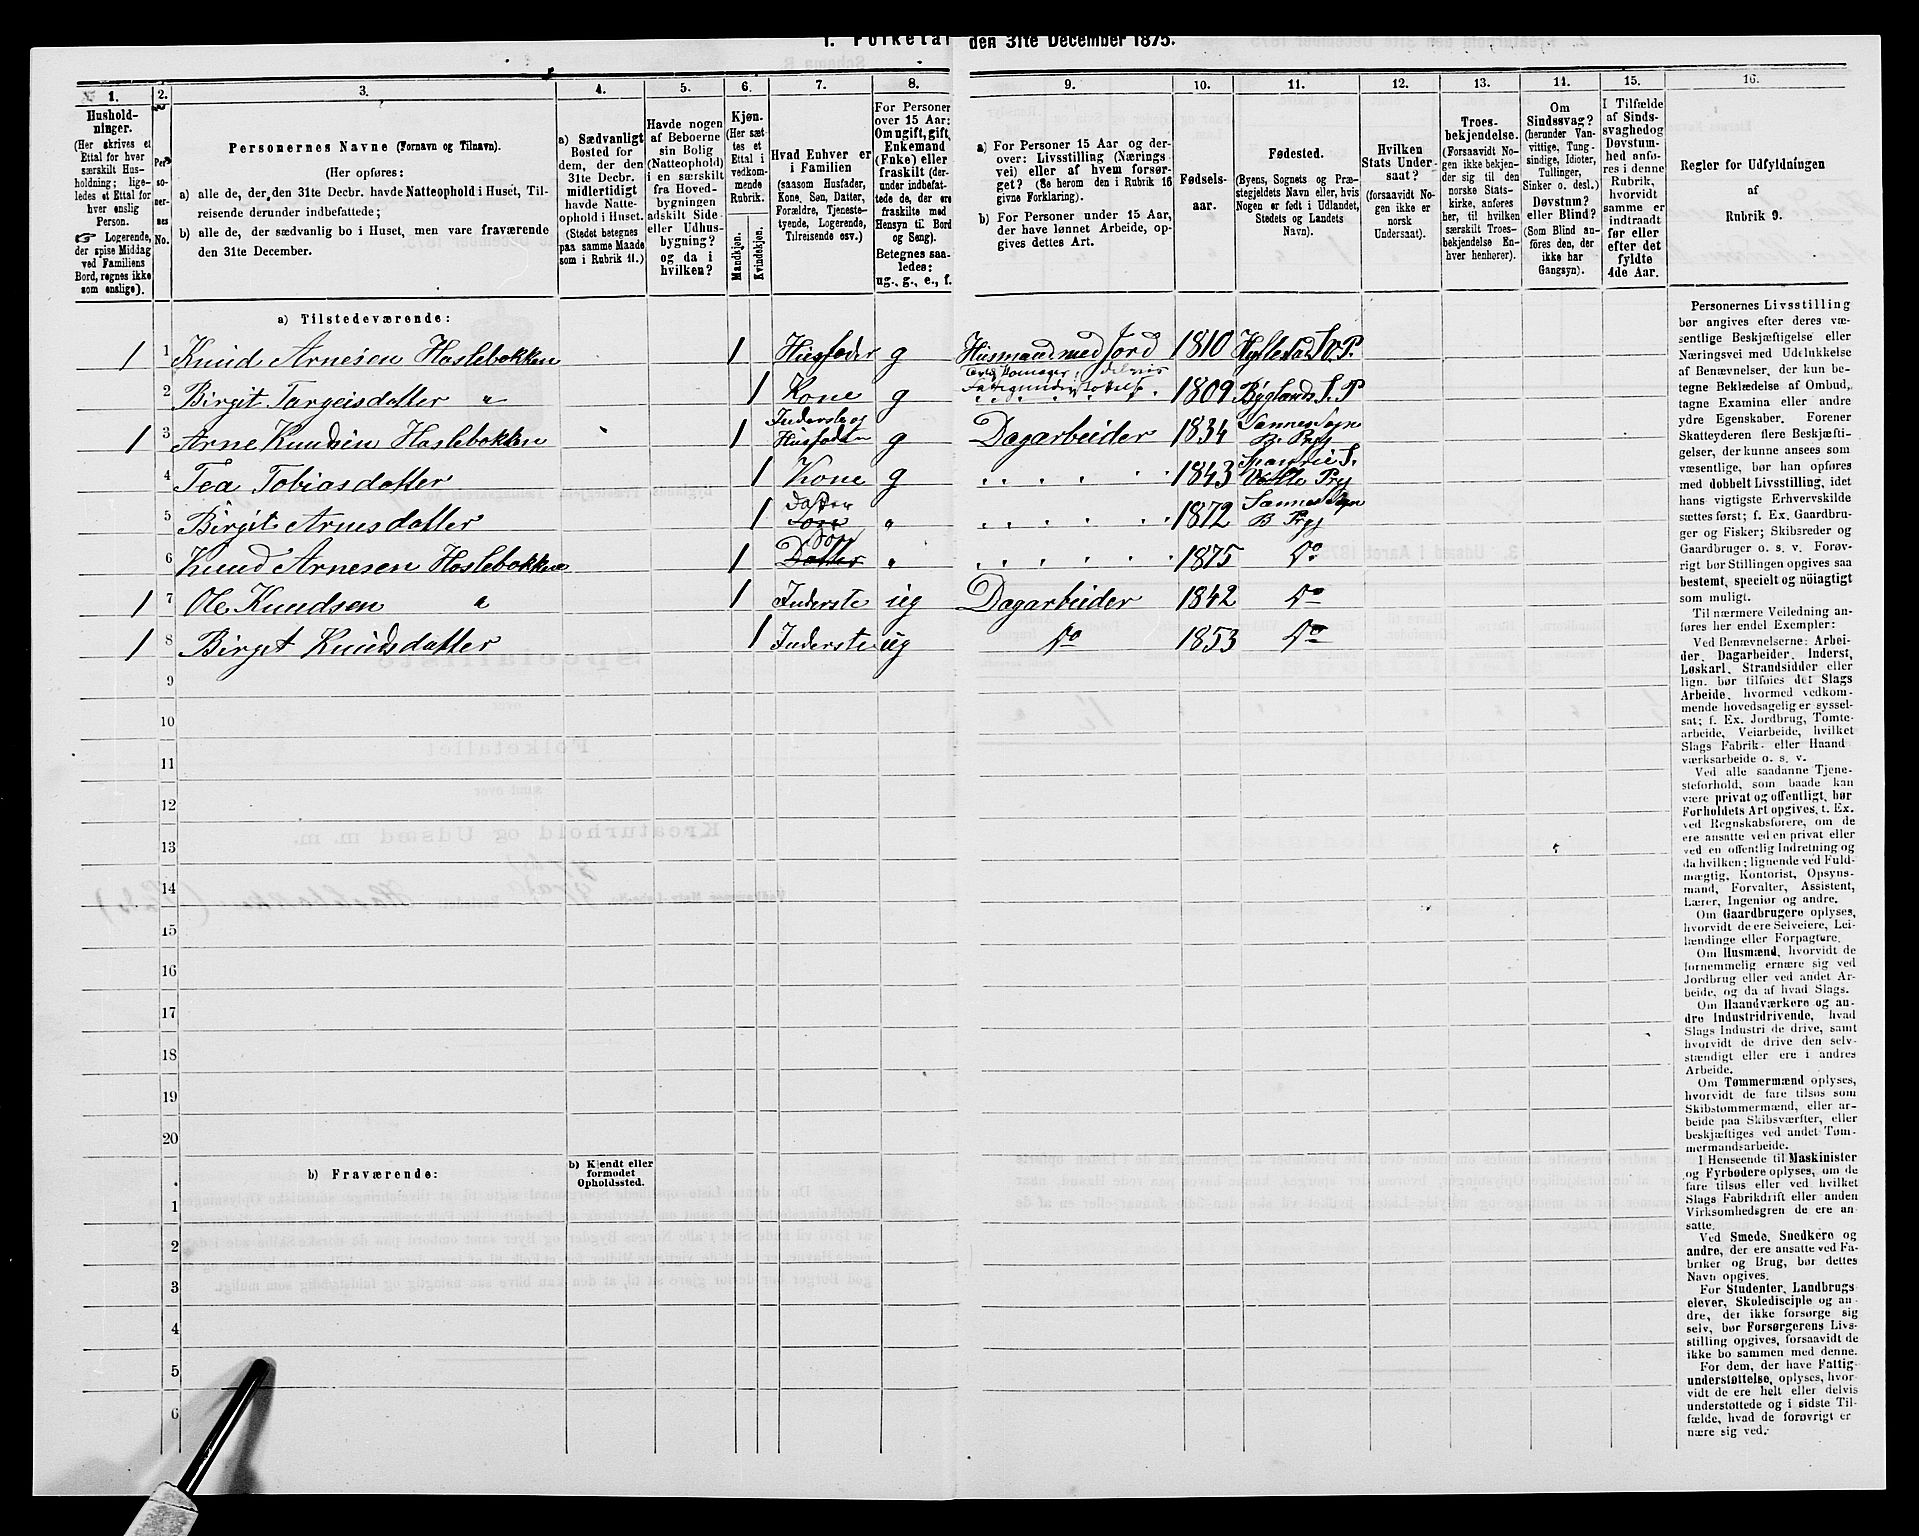 1. Folketal den 31te December 1875.
1. 2. 3. 4. 5. 6. 7. 8. 9. 10. 11. 12. 13. 14. 15. 16.
Hushold-
ninger.
(Her skrives et
Ettal for hver
særskilt Hus-
holdning; lige-
ledes et Ettal
for hver
enslig
Person.
☞ Logerende,
der spise Middag
ved Familiens
Bord, regnes ikke
som enslige).
Per-
so-
ner-
nes
No.
Personernes Navne (Fornavn og Tilnavn).
(Her opføres:
a) alle de, der den 31te Decbr. havde Natteophold i Huset, Til-
reisende derunder indbefattede;
b) alle de, der sædvanlig bo i Huset, men vare fraværende
den 31te December.
a) Sædvanligt
Bosted for
dem, der den
31te Decbr.
midlertidigt
havde Natte-
ophold i Huset.
(Stedet betegnes
paa samme Maade
som i Rubrik 11.)
Havde nogen
af Beboerne
sin Bolig
(Natteophold)
i en særskilt
fra Hoved-
bygningen
adskilt Side
eller Udhus-
bygning?
og da i
hvilken?
Kjøn.
(Her sæt-
tes et
Ettal i
vedkom-
mende
Rubrik.
Mandkjøn.
Kvindekjøn.
Hvad Enhver er
i Familien
(saasom Husfader,
Kone, Søn, Datter,
Forældre, Tjeneste-
tyende, Logerende,
Tilreisende osv.)
For Personer
over 15 Aar:
Om ugift, gift,
Enkemand
(Enke) eller
fraskilt (der-
under indbefat-
tede de, der ere
fraskilte med
Hensyn til Bord
og Seng).
Betegnes saa-
ledes:
ug., g., e., f.
a) For Personer 15 Aar og der-
over: Livsstilling (Nærings
vei) eller af hvem forsør-
get? (Se herom den i Rubrik 16
givne Forklaring).
b) For Personer under 15 Aar,
der have lønnet Arbeide, op-
gives dettes Art.
Fødsels-
aar.
Fødested.
(Byens, Sognets og Præ-
stegjeldets Navn eller, hvis
Nogen er født i Udlandet,
Stedets og Landets
Navn).
Hvilken
Stats Under-
saat?
(forsaavidt No-
gen ikke er
norsk
Undersaat).
Troes-
bekjendelse.
(Forsaavidt No-
gen ikke bekjen-
der sig til den
norske Stats-
kirke, anføres
her, til hvilken
særskilt Troes-
bekjendelse En-
hver henhører).
Om
Sindssvag?
(herunder Van-
vittige, Tung-
sindige, Idioter,
Tullinger,
Sinker o. desl.)
Døvstum?
eller Blind?
(Som Blind an-
føres den, der
ikke har
Gangsyn).
I Tilfælde
af Sinds-
svaghed og
Døvstum-
hed anfø-
res i denne
Rubrik,
hvorvidt
samme er
indtraadt
før eller
efter det
fyldte
4de Aar.
Regler for Udfyldningen
af
Rubrik 9.
a) Tilstedeværende:
1 1 Knud Arnesen Haslebakken 1 Husfader g Husmand med Jord 1810 Hyllestad S. V. P.
2 Birgit Targeisdatter " 1 Kone g 1809 Byglands S. P
1 3 Arne Knudsen Haslebakken 1 Inderste og
Husfader g Dagarbeider 1834 Sannes Sogn
B. Prgj
4 Tea Tobiasdatter 1 Kone g 1843
5 Birgit Arnesdatter 1 Datter " 1872 Sannes Sogn
B Prgj
6 Knud Arnesen Haslebakken 1 Søn
Datter " 1875 Do
1 7 Ole Knudsen " 1 Inderste ug Dagarbeider 1842 Do
1 8 Birget Knudsdatter 1 Inderste ug Do 1853 Do
9
10
11
12
13
14
15
16
17
18
19
20
b) Fraværende:
b) Kjendt eller
formodet
Opholdssted.
1
2
3
4
5
6
Personernes Livsstilling
bør angives efter deres væ-
sentlige Beskjæftigelse eller
Næringsvei med Udelukkelse
af Benævnelser, der kun be-
tegne Beklædelse af Ombud,
tagne Examina eller andre
ydre Egenskaber. Forener
Skatteyderen flere Beskjæfti-
gelser, der kunne ansees som
væsentlige, bør han opføres
med dobbelt Livsstilling, idet
hans vigtigste Erhvervskilde
sættes først; f. Ex. Gaardbru-
ger og Fisker; Skibsreder og
Gaardbruger o. s. v. Forøv-
rigt bør Stillingen opgives saa
bestemt, specielt og nøiagtigt
som muligt.
Til nærmere Veiledning an-
føres her endel Exempler:
Ved Benævnelserne: Arbei-
der, Dagarbeider, Inderst,
Løskarl, Strandsidder eller
lign. bør tilføies det Slags
Arbeide, hvormed vedkom-
mende hovedsagelig er syssel-
sat; f. Ex. Jordbrug, Tomte-
arbeide, Veiarbeide, hvilket
Slags Fabrik- eller Haand
værksarbeide o. s. v.
Ved alle saadanne Tjene-
steforhold, som baade kan
være privat og offentligt, bør
Forholdets Art opgives, t. Ex.
ved Regnskabsførere, om de
ere ansatte ved en privat eller
ved en offentlig Indretning og
da hvilken; lignende ved Fuld-
mægtig, Kontorist, Opsyns-
mand, Forvalter, Assistent,
Lærer, Ingeniør og andre.
Om Gaardbrugere oplyses,
hvorvidt de ere Selveiere, Lei-
lændinge eller Forpagtere.
Om Husmænd, hvorvidt de
fornemmelig ernære sig ved
Jordbrug eller ved andet Ar-
beide, og da af hvad Slags.
Om Haandværkere og an-
dre Industridrivende, hvad
Slags Industri de drive, samt
hvorvidt de drive den selv-
stændigt eller ere i andres
Arbeide.
Om Tømmermænd oplyses,
hvorvidt de fare tilsøs som
Skibstømmermænd, eller ar-
beide paa Skibsværfter, eller
beskjæftiges ved andet Tøm-
mermandsarbeide.
I Henseende til Maskinister
og Fyrbødere oplyses, om de
fare tilsøs eller ved hvilket
Slags Fabrikdrift eller anden
Virksomhedsgren de ere an-
satte.
Ved Smede, Snedkere og
andre, der ere ansatte ved Fa-
briker og Brug, bør dettes
Navn opgives.
For Studenter, Landbrugs-
elever, Skoledisciple og an-
dre, der ikke forsørge sig
selv, bør Forsørgerens Livs-
stilling opgives, forsaavidt de
ikke bo sammen med denne.
For dem, der have Fattig-
understøttelse, oplyses, hvor-
vidt de ere helt eller delvis
understøttede og i sidste Til-
fælde, hvad de forøvrigt er
nære sig ved.